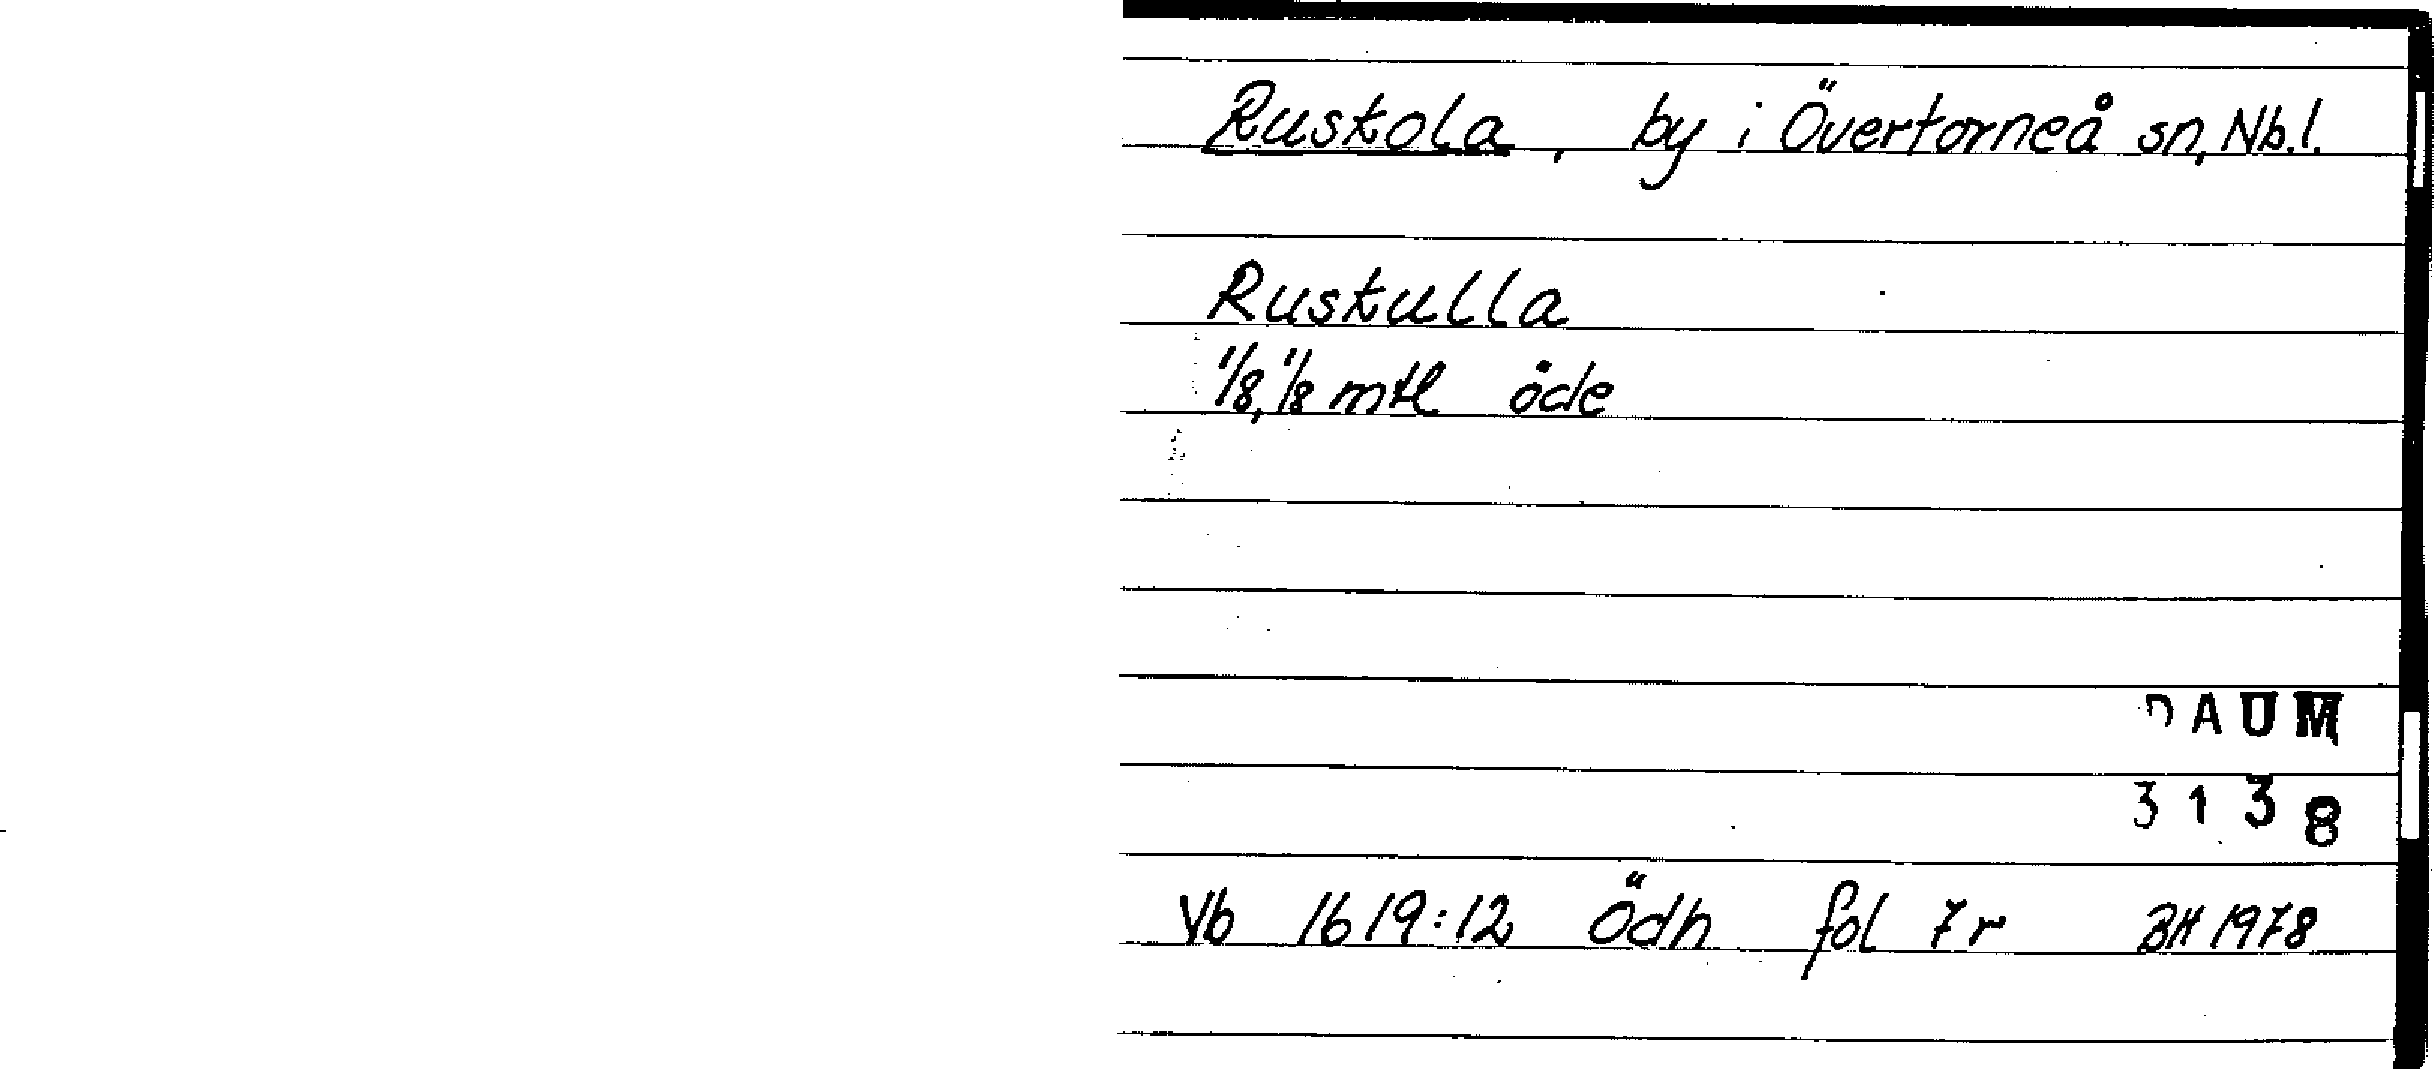 Ruskola, by i Övertorneå sn, Nb.l.
Ruskulla
1/8, 1/8 mtl öde
DAUM
3138
Vb 1619:12 Ödh fol 7r BH 1978